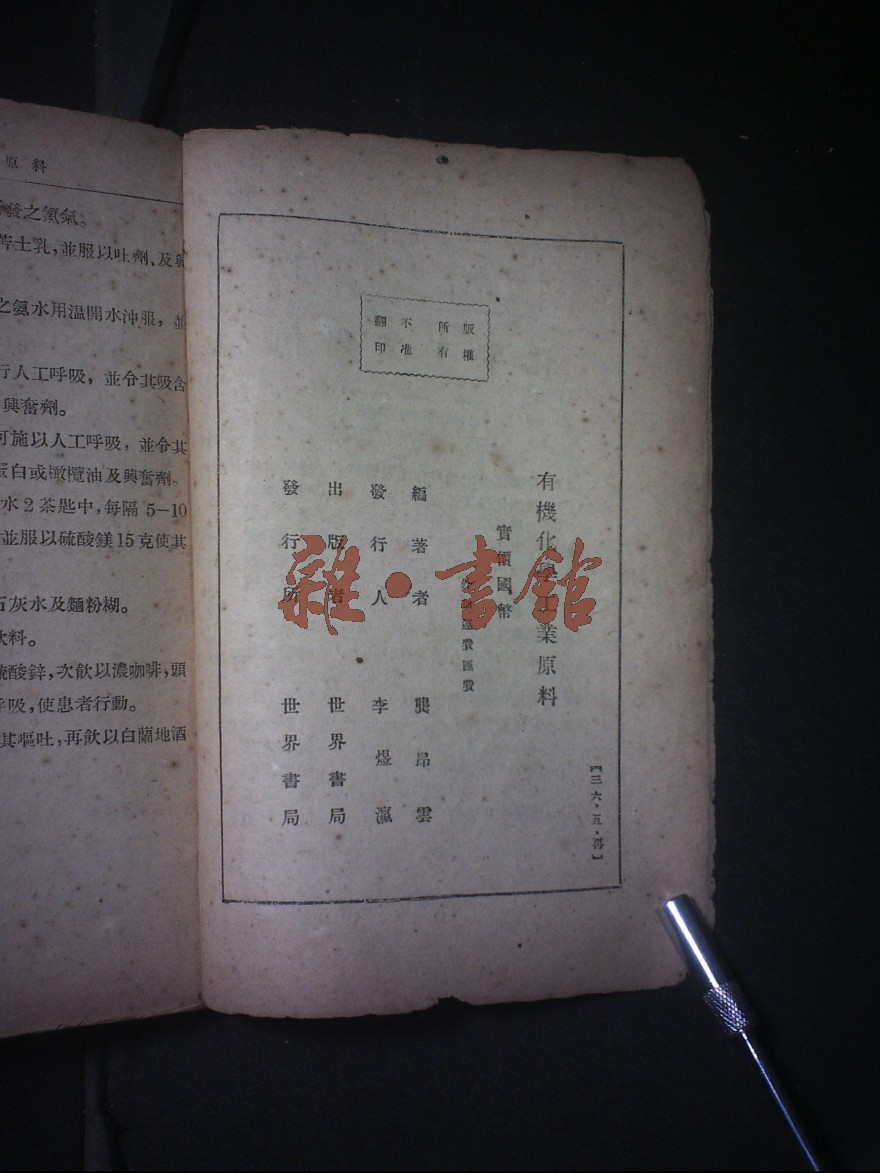 原料
發之氨氣。
苦土乳,並服以吐劑、及興
之氨水用温開水沖服,並
行人工呼吸,並令其吸含
興奮劑。
可施以人工呼吸,並令其
蛋白或橄欖油及興奮劑。
水2茶匙中,每隔5—10
並服以硫酸鎂15克使其
石灰水及麵粉糊。
飲料。
硫酸鋅,次飲以濃咖啡,頭
呼吸,使患者行動。
其嘔吐,再飲以白蘭地酒
版權所有
不准翻印
【三六·五·再】
有機化學工業原料
實價國幣
外加運費匯費
編著者 龔昂雲
發行人 李煜瀛
出版者 世界書局
發行所 世界書局
雜·書館